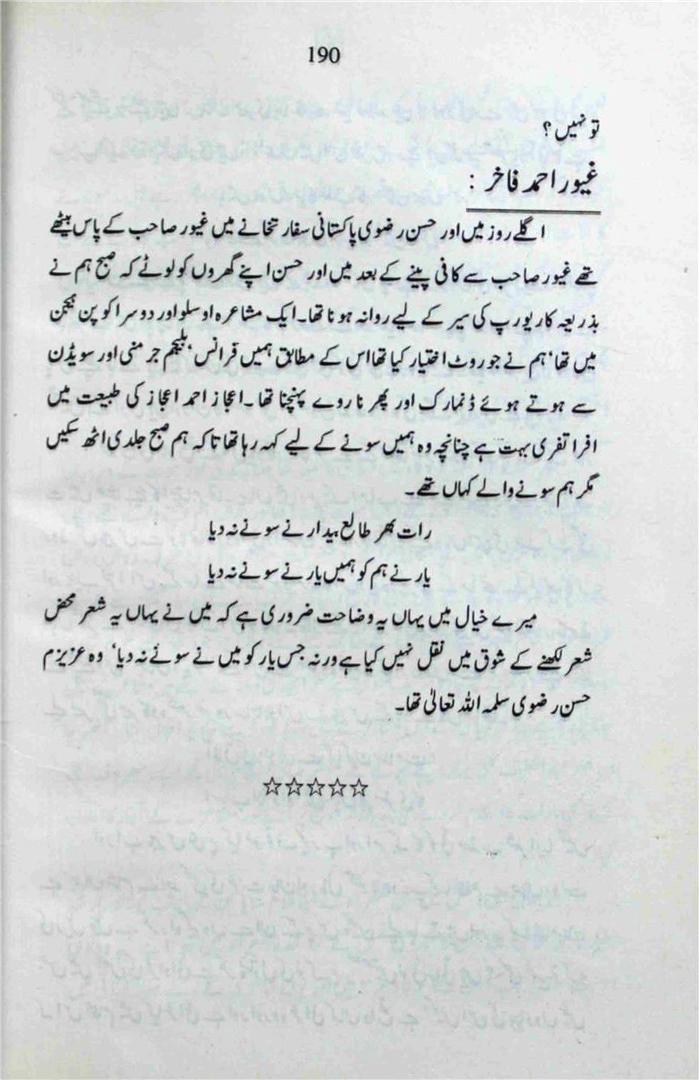 190
تو نہیں؟
غیور احمد فاخر :
اگلے روز میں اور حسن رضوی پاکستانی سفارتخانے میں غیور صاحب کے پاس بیٹھے
تھے غیور صاحب سے کافی پینے کے بعد میں اور حسن اپنے گھروں کو لوٹے کہ صبح ہم نے
بذریعہ کار یورپ کی سیر کے لیے روانہ ہونا تھا۔ ایک مشاعرہ اوسلو اور دوسرا کوپن ہیگن
میں تھا‘ ہم نے جو روٹ اختیار کیا تھا اس کے مطابق ہمیں فرانس‘ بلجیم جرمنی اور سویڈن
سے ہوتے ہوئے ڈنمارک اور پھر ناروے پہنچنا تھا۔ اعجاز احمد اعجاز کی طبیعت میں
افراتفری بہت ہے چنانچہ وہ ہمیں سونے کے لیے کہہ رہا تھا تاکہ ہم صبح جلدی اٹھ سکیں
مگر ہم سونے والے کہاں تھے۔
رات بھر طالع بیدار نے سونے نہ دیا
یار نے ہم کو ہمیں یار نے سونے نہ دیا
میرے خیال میں یہاں یہ وضاحت ضروری ہے کہ میں نے یہاں یہ شعر محض
شعر لکھنے کے شوق میں نقل نہیں کیا ہے ورنہ جس یار کو میں نے سونے نہ دیا‘ وہ عزیزم
حسن رضوی سلمہ اللہ تعالیٰ تھا۔
☆☆☆☆☆